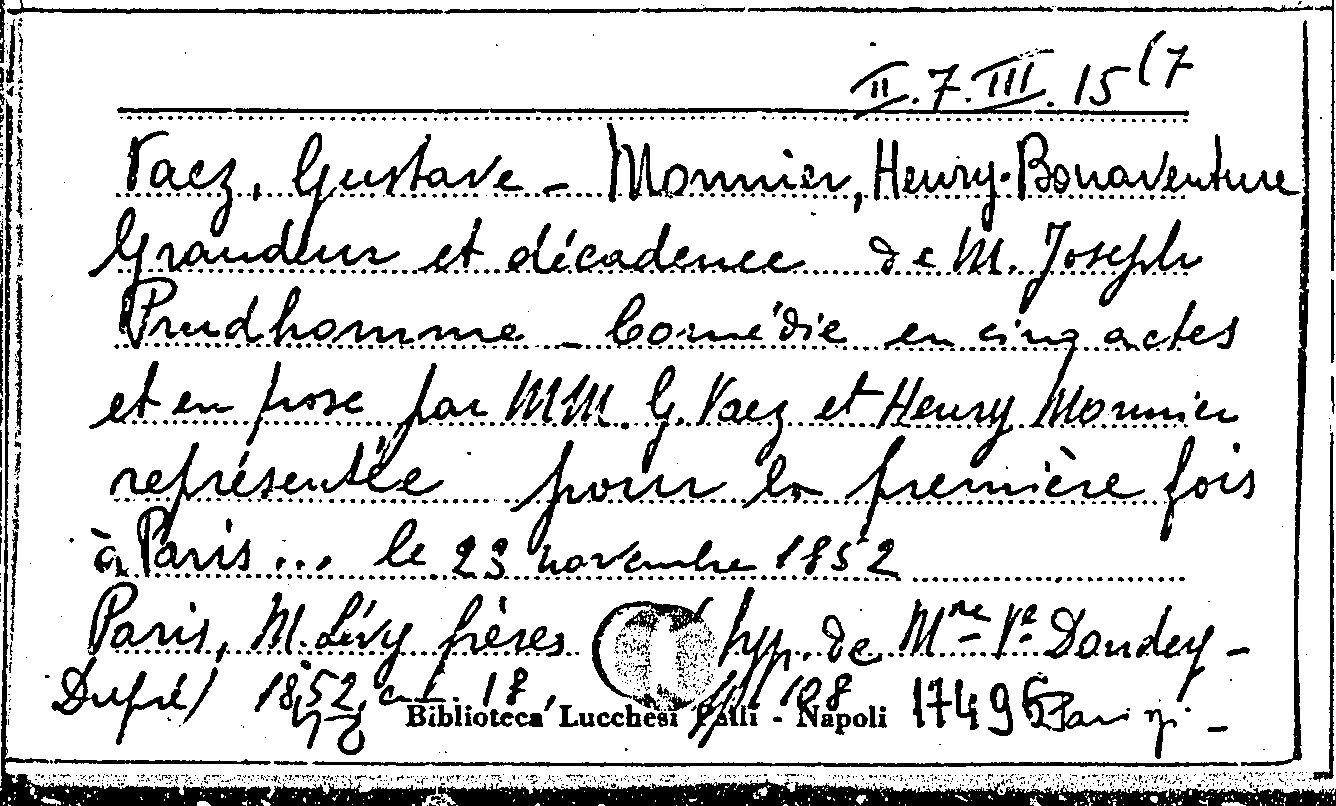 II.7.III.15(7
Vaez, Gustave - Monnier, Henry-Bonaventure
Grandeur et décadence de M. Joseph
Prudhomme - Comédie en cinq actes
et en prose par MM. G. Vaez et Henry Monnier
représentée pour la première fois
à Paris... le 23 novembre 1852
Paris, M. Lévy frères (typ. de Mme Ve Dondey-
Dupré) 1852, cm. 18, pp. 108 17496
Biblioteca Lucchesi Palli - Napoli